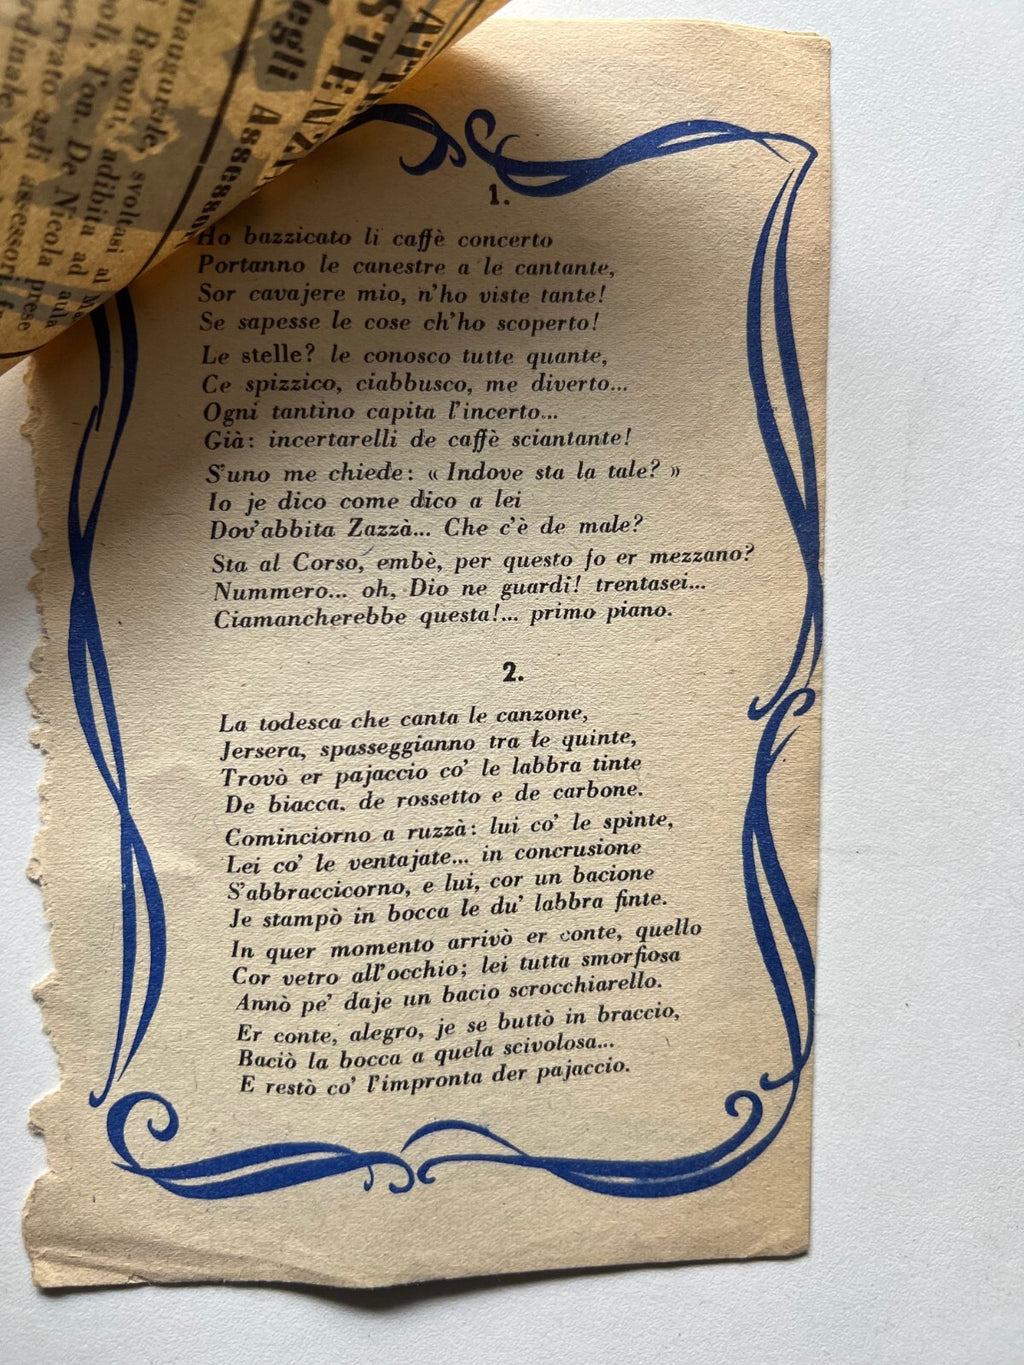 ATTI
STENZA
degli Assessori
inaugurale svoltasi al
Baroni, adibita ad aula
poli, l'on. De Nicola prese
ervato agli assessori
rdinale
1.
Ho bazzicato li caffè concerto
Portanno le canestre a le cantante,
Sor cavajere mio, n'ho viste tante!
Se sapesse le cose ch'ho scoperto!
Le stelle? le conosco tutte quante,
Ce spizzico, ciabbusco, me diverto...
Ogni tantino capita l'incerto...
Già: incertarelli de caffè sciantante!
S'uno me chiede: « Indove sta la tale? »
Io je dico come dico a lei
Dov'abbita Zazzà... Che c'è de male?
Sta al Corso, embè, per questo fo er mezzano?
Nummero... oh, Dio ne guardi! trentasei...
Ciamancherebbe questa!... primo piano.
2.
La todesca che canta le canzone,
Jersera, spasseggianno tra le quinte,
Trovò er pajaccio co' le labbra tinte
De biacca. de rossetto e de carbone.
Cominciorno a ruzzà: lui co' le spinte,
Lei co' le ventajate... in concrusione
S'abbraccicorno, e lui, cor un bacione
Je stampò in bocca le du' labbra finte.
In quer momento arrivò er conte, quello
Cor vetro all'occhio; lei tutta smorfiosa
Annò pe' daje un bacio scrocchiarello.
Er conte, alegro, je se buttò in braccio,
Baciò la bocca a quela scivolosa...
E restò co' l'impronta der pajaccio.